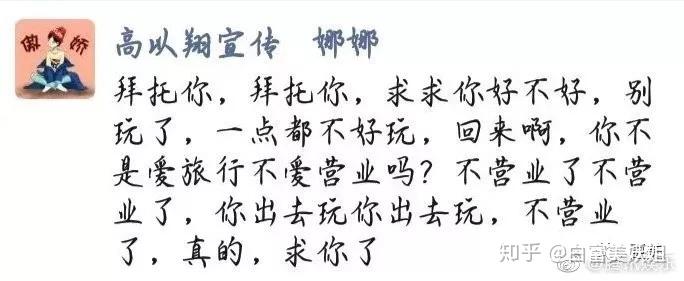 傲 娇
高以翔宣传 娜娜
拜托你，拜托你，求求你好不好，别
玩了，一点都不好玩，回来啊，你不
是爱旅行不爱营业吗？不营业了不营
业了，你出去玩你出去玩，不营业
了，真的，求你了
知乎 @白富美
@腾讯娱乐